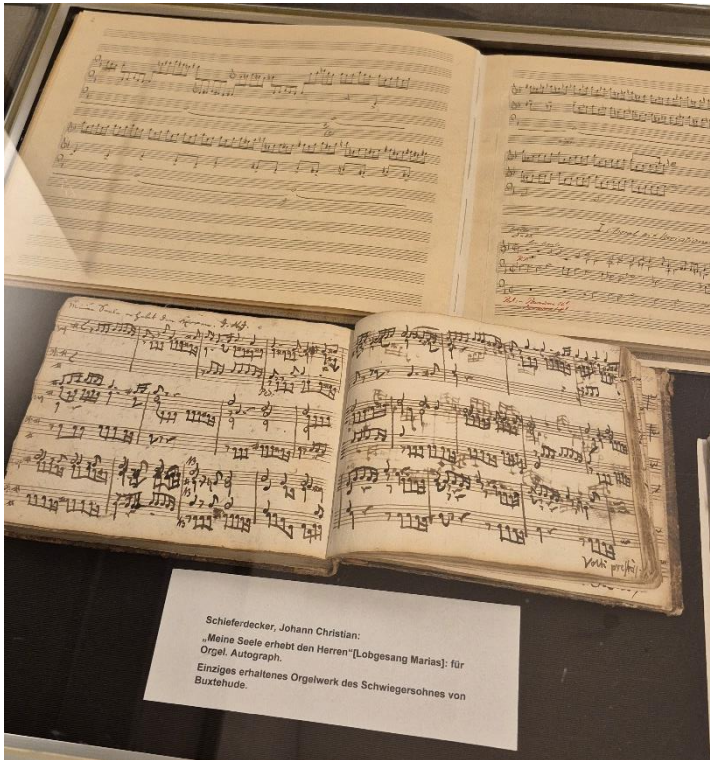 Meine Seele erhebt den Herren.
Volti presto
Schieferdecker, Johann Christian:
„Meine Seele erhebt den Herren“[Lobgesang Marias]: für
Orgel. Autograph.
Einziges erhaltenes Orgelwerk des Schwiegersohnes von
Buxtehude.